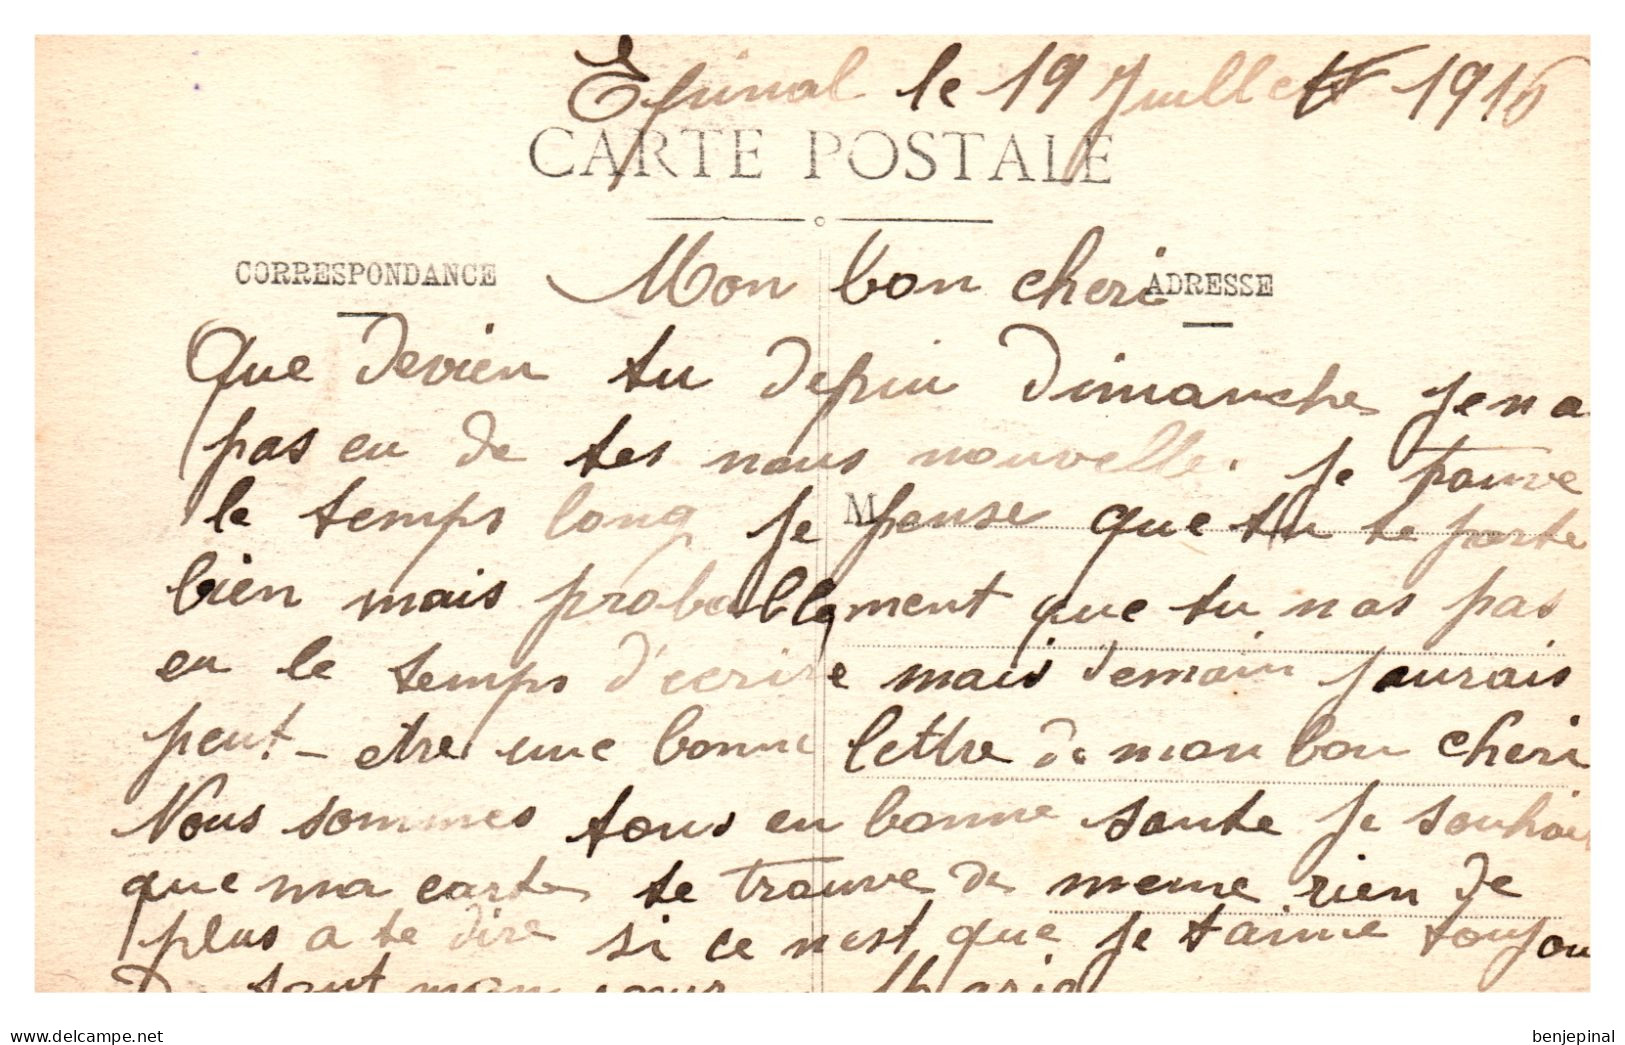 Epinal le 19 Juillet 1916
CARTE POSTALE
CORRESPONDANCE
ADRESSE
Mon bon cheri
Que devien tu depui dimanche je n a
pas eu de tes nous nouvelle. je trouve
le temps long je pense que tu te porte
M
bien mais probablement que tu nas pas
eu le temps d'ecrire mais demain jaurais
peut-etre une bonne lettre de mon bon cheri
Nous sommes tous en bonne sante je souhai
que ma carte te trouve de meme rien de
plus a te dire si ce nest que je taime toujou
De tout mon cœur Maria
delcampe.net
benjepinal